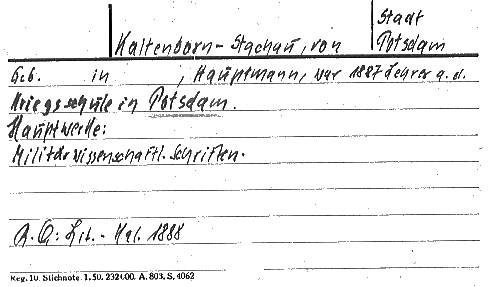 Stadt
Kaltenborn-Stachau, von Potsdam
Geb. in , Hauptmann, war 1887 Lehrer a. d.
Kriegsschule in Potsdam.
Hauptwerke:
Militärwissenschaftl. Schriften.
A. Q: Lit.- Kal. 1888
Reg. 10. Stichnote. 1. 50. 232400. A. 803, S. 4062